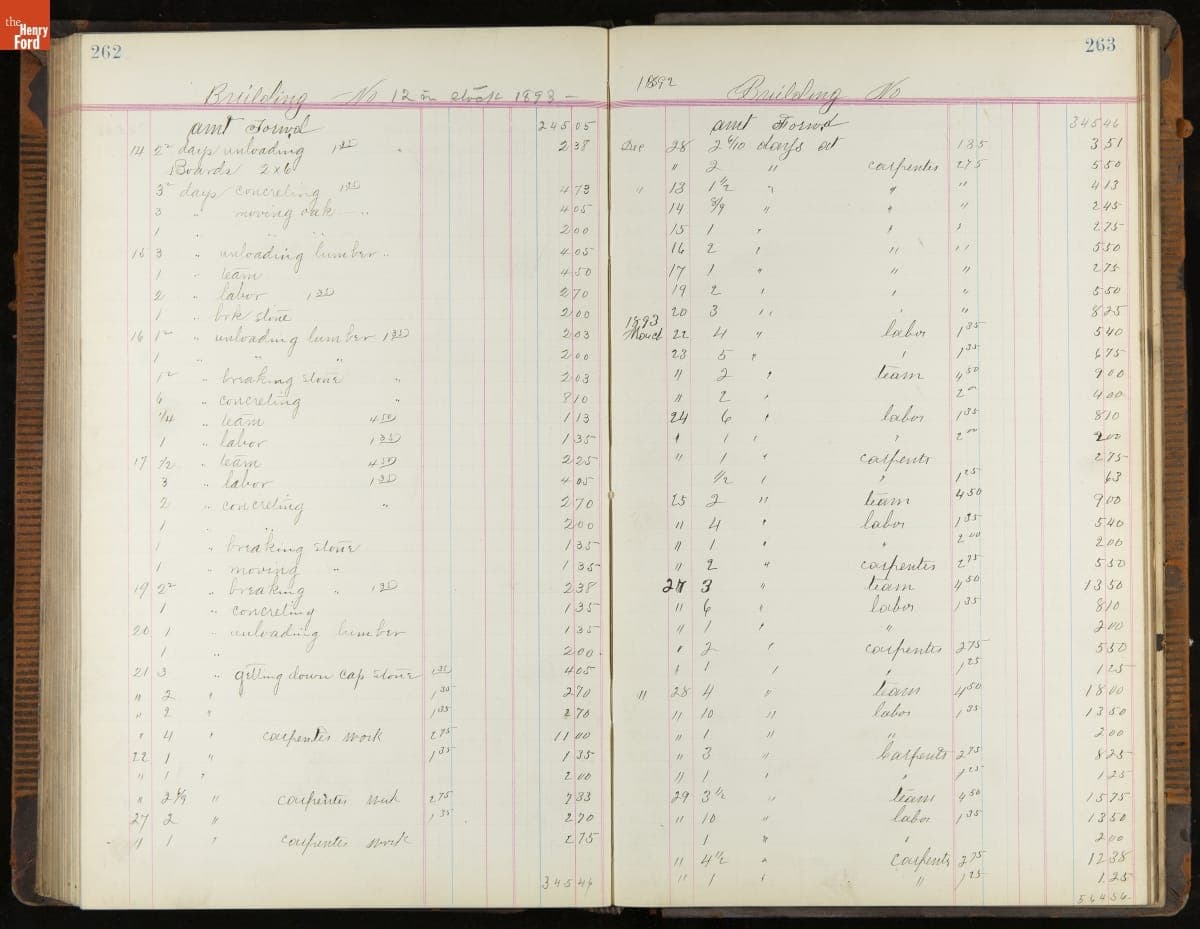 the Henry Ford
262
Building No 12 in stock 1893 -
amt Forwd 245 05
14 2 days unloading 1 35 2 38
Boards 2x6
3 days concreting 1 35 4 73
3 " moving oak " 4 05
1 " " " 2 00
15 3 " unloading lumber " 4 05
1 " team 4 50
2 " labor 1 35 2 70
1 " brk stone 2 00
16 1 " unloading lumber 1 35 2 03
1 " " " 2 00
1 " breaking stone " 2 03
6 " concreting " 8 10
1/4 " team 4 50 1 13
1 " labor 1 35 1 35
17 1/2 " team 4 50 2 25
3 " labor 1 35 4 05
2 " concreting " 2 70
1 " " 2 00
1 " breaking stone 1 35
1 " moving " 1 35
19 2 " breaking " 1 35 2 38
1 " concreting 1 35
20 1 " unloading lumber 1 35
1 " 2 00
21 3 " getting down cap stone 1 35 4 05
" 2 " 1 35 2 70
" 2 " 1 35 2 70
" 4 " carpenter work 2 75 11 00
22 1 " 1 35 1 35
" 1 " 2 00
" 2 " carpenter work 2 75 7 33
27 2 " 1 35 2 70
" 1 " carpenter work 2 75
345 46
263
1892 Building No
amt Forwd 345 46
Dec 28 2 6/10 days at 1 35 3 51
" 2 " carpenter 2 75 5 50
" 13 1 1/2 " " " 4 13
14 8/9 " " " 2 45
15 1 " " " 2 75
16 2 " " " 5 50
17 1 " " " 2 75
19 2 " " " 5 50
20 3 " " " 8 25
1893
March 22 4 " labor 1 35 5 40
23 5 " " 1 35 6 75
" 2 " team 4 50 9 00
" 2 " 2 00 4 00
24 6 " labor 1 35 8 10
" 1 " " 2 00 2 00
" 1 " carpenter 2 75
1/2 " " 1 25 63
25 2 " team 4 50 9 00
" 4 " labor 1 35 5 40
" 1 " " 2 00 2 00
" 2 " carpenter 2 75 5 50
27 3 " team 4 50 13 50
" 6 " labor 1 35 8 10
" 1 " " 2 00
" 2 " carpenter 2 75 5 50
" 1 " " 1 25 1 25
" 28 4 " team 4 50 18 00
" 10 " labor 1 35 13 50
" 1 " " 2 00
" 3 " Carpenter 2 75 8 25
" 1 " " 1 25 1 25
29 3 1/2 " team 4 50 15 75
" 10 " labor 1 35 13 50
1 " " 2 00
" 4 1/2 " carpenter 2 75 12 38
" 1 " " 1 25 1 25
564 56